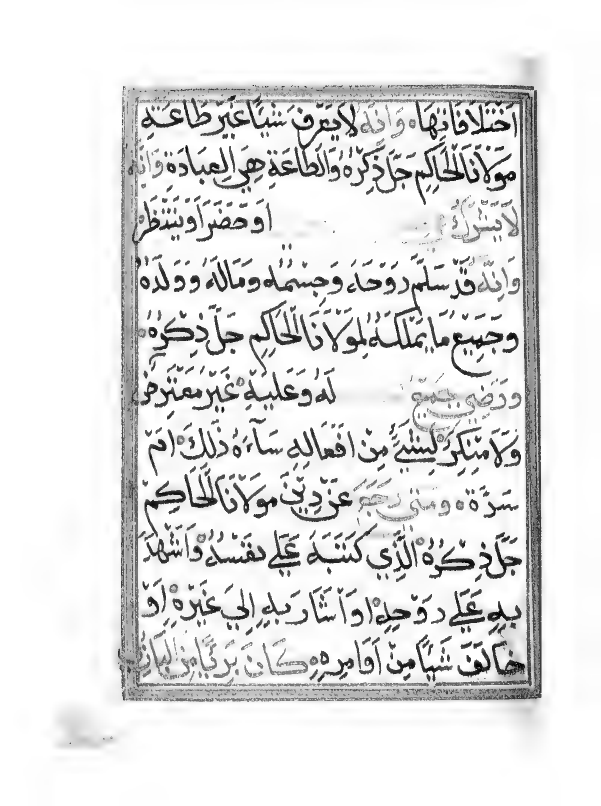 اختلافاتها وانه لا يعرف شيا غير طاعة
مولانا الحاكم جل ذكره والطاعة هي العبادة وانه
لا يشرك او حضر او ينتظر
وانه قد سلم روحه وجسمه وماله وولده
وجميع ما يملكه لمولانا الحاكم جل ذكره
ورضي جميع له وعليه غير معترض
ولا منكر لشيء من افعاله ساءه ذلك ام
سره ومتى رجع عن دين مولانا الحاكم
جل ذكره الذي كتبه علي نفسه واشهد
به علي روحه او اشار به الي غيره او
خالف شيا من اوامره كان بريا من الباري